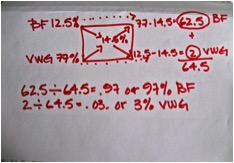 BF 12.5% 77-14.5=62.5 BF
+
14.5%
VWG 77% 12.5-14.5=2 VWG
64.5
62.5÷64.5=.97 or 97% BF
2÷64.5=.03. or 3% VWG